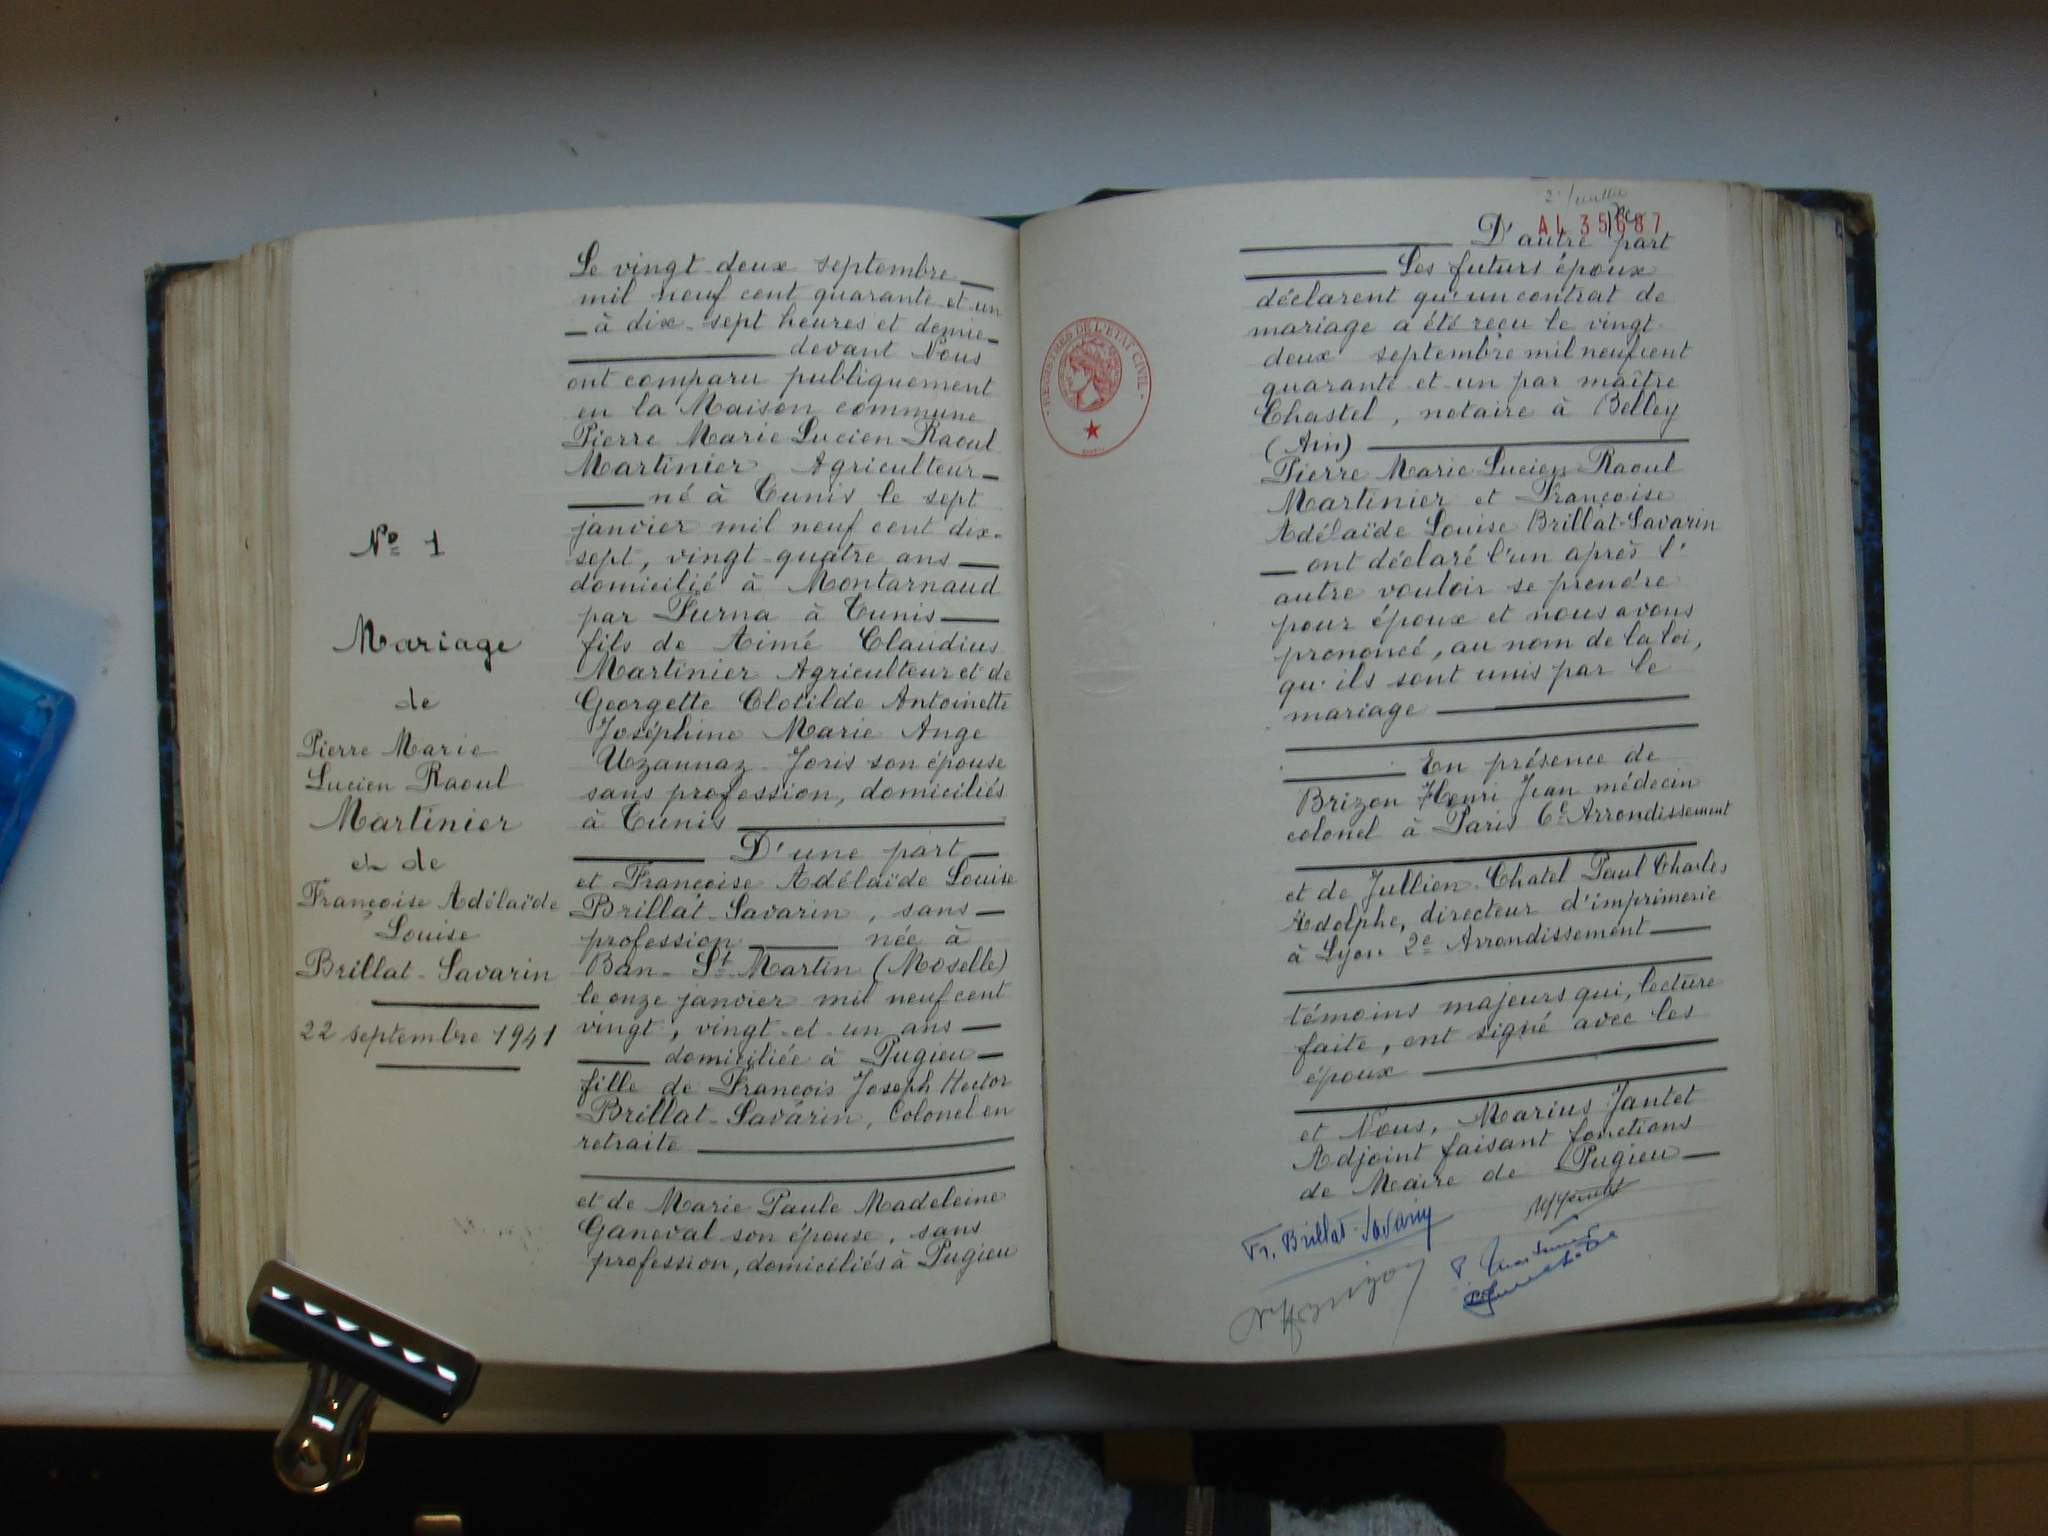 Nº 1
Mariage
de
Pierre Marie
Lucien Raoul
Martinier
et de
Françoise Adélaïde
Louise
Brillat-Savarin
22 septembre 1941
Le vingt-deux septembre
mil neuf cent quarante et un
à dix-sept heures et demie
devant Nous
ont comparu publiquement
en la Maison commune
Pierre Marie Lucien Raoul
Martinier Agriculteur
né à Tunis le sept
janvier mil neuf cent dix-
sept, vingt-quatre ans
domicilié à Montarnaud
par Furna à Tunis
fils de Aimé Claudius
Martinier Agriculteur et de
Georgette Clotilde Antoinette
Joséphine Marie Ange
Uzannaz-Joris son épouse
sans profession, domiciliés
à Tunis
D'une part
et Françoise Adélaïde Louise
Brillat-Savarin, sans
profession née à
Ban-St Martin (Moselle)
le onze janvier mil neuf cent
vingt, vingt-et-un ans
domiciliée à Pugieu
fille de François Joseph Hector
Brillat-Savarin, Colonel en
retraite
et de Marie Paule Madeleine
Ganeval son épouse, sans
profession, domiciliés à Pugieu
AL 35687
D'autre part
Les futurs époux
déclarent qu'un contrat de
mariage a été reçu le vingt-
deux septembre mil neuf cent
quarante et un par maître
Chastel, notaire à Belley
(Ain)
Pierre Marie Lucien Raoul
Martinier et Françoise
Adélaïde Louise Brillat-Savarin
ont déclaré l'un après l'
autre vouloir se prendre
pour époux et nous avons
prononcé, au nom de la loi,
qu'ils sont unis par le
mariage
En présence de
Brizon Henri Jean médecin
colonel à Paris 6e Arrondissement
et de Jullien-Chatel Paul Charles
Adolphe, directeur d'imprimerie
à Lyon 2e Arrondissement
témoins majeurs qui, lecture
faite, ont signé avec les
époux
et Nous, Marius Jantet
Adjoint faisant fonctions
de Maire de Pugieu
Fr. Brillat-Savarin
REGISTRES DE L'ETAT CIVIL